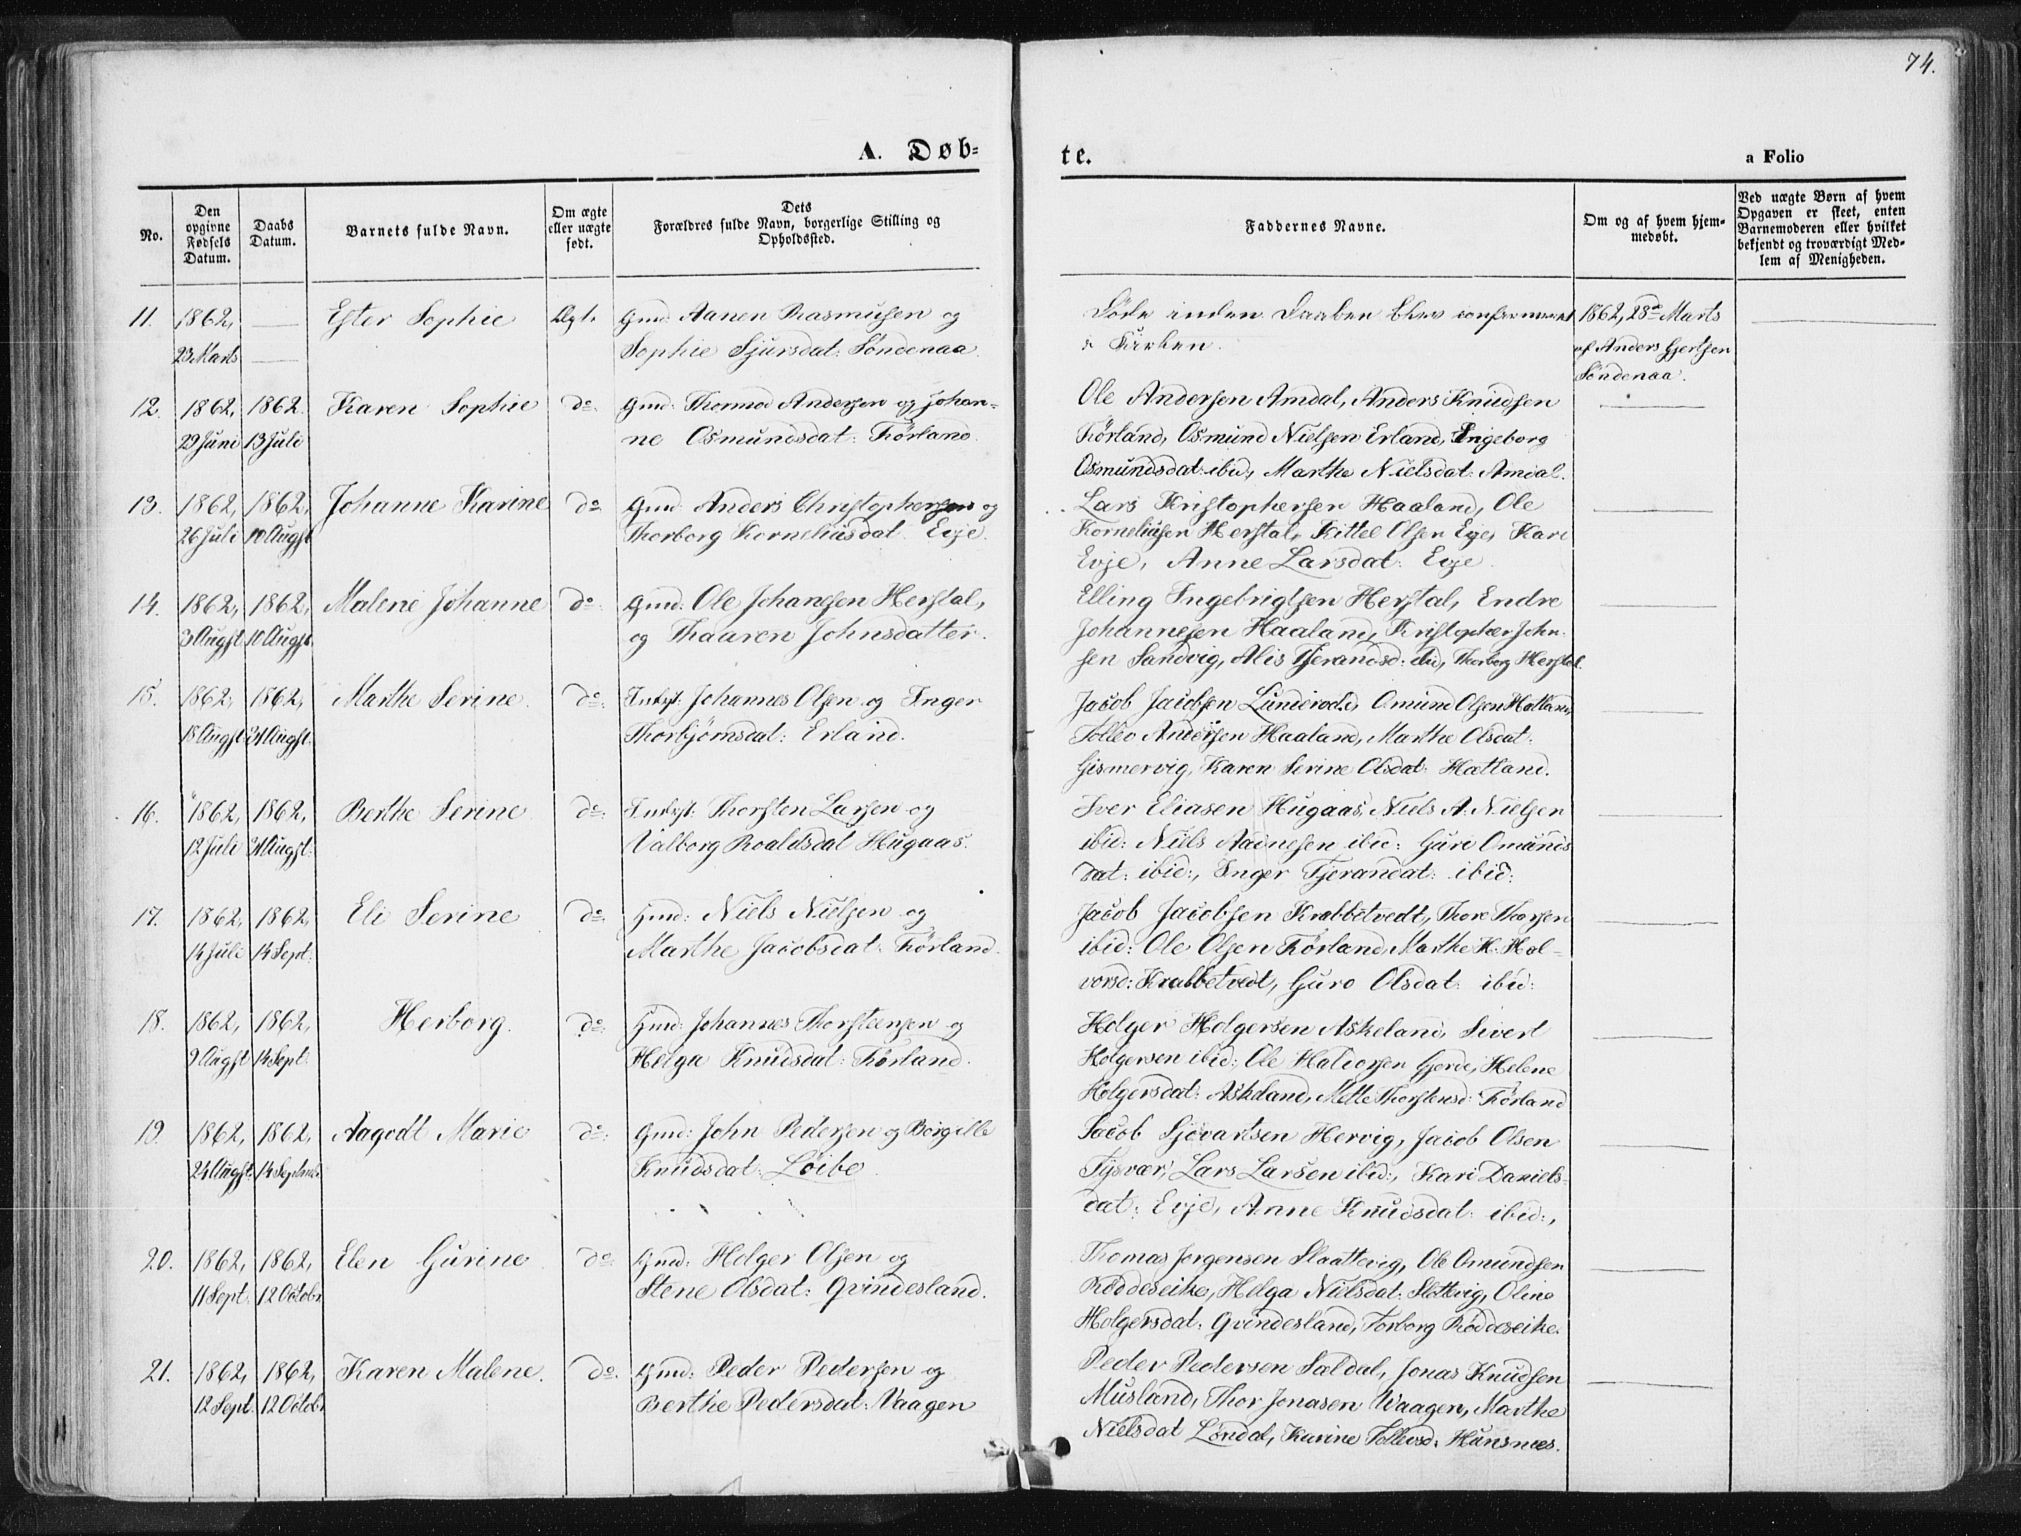 74.
A. Døb-
te.
a Folio
No.
Den
opgivne
Fødsels
Datum.
Daabs
Datum.
Barnets fulde Navn.
Om ægte
eller uægte
født.
Dets
Forældres fulde Navn, borgerlige Stilling og
Opholdssted.
Faddernes Navne.
Om og af hvem hjem-
medøbt.
Ved uægte Børn af hvem
Opgaven er skeet, enten
Barnemoderen eller hvilket
bekjendt og troværdigt Med-
lem af Menigheden.
11. 1862, Ester Sophie Ægt. Gmd: Aanen Rasmussen og
23 Marts Sophie Sjursdat: Søndenaa.
Døde inden Daaben blev confirmeret
i Kirken.
1862, 28de Marts
af Anders Gjertsen
Søndenaa.
12. 1862, 1862. Karen Sophie do: Gmd: Thormod Andersen og Johan-
29 Juni 13 Juli ne Osmundsdat: Førland.
Ole Andersen Amdal, Anders Knudsen
Førland, Osmund Nielsen Erland, Ingeborg
Osmundsdat: ibid, Marthe Nielsdat: Amdal.
13. 1862, 1862, Johanne Karine do: Gmd: Anders Christophersen og
26 Juli 10 Augst Thorborg Korneliusdat: Evje.
Lars Kristophersen Haaland, Ole
Korneliusen Herstal, Kittel Olsen Evje, Kari
Evje, Anne Larsdat: Evje.
14. 1862, 1862, Malene Johanne do: Gmd: Ole Johansen Herstal,
3 Augst 10 Augst. og Thaaren Johnsdatter.
Elling Ingebrigtsen Herstal, Endre
Johannesen Haaland, Kristopher John-
sen Sandvig, Alis Tjerandsd: ibid, Thorborg Herstal.
15. 1862, 1862, Marthe Serine. do: Indst: Johannes Olsen og Inger
18 Augst 31 Augst. Thorbjørnsdat: Erland.
Jacob Jacobsen Lunderode, Omund Olsen Hatland,
Tollev Andersen Haaland, Marthe Olsdat:
Gismervig, Karen Serine Olsdat: Hatland.
16. 1862, 1862, Berthe Serine do: Indst: Thorsten Larsen og
12 Juli 31 Augst: Valborg Roaldsdat Hugaas.
Iver Eliasen Hugaas, Niels A. Nielsen
ibid: Niels Aadnesen ibid: Guri Omunds
dat: ibid:, Inger Tjerandat: ibid:
17. 1862, 1862, Eli Serine do: Gmd: Niels Nielsen og
14 Juli 14 Sept: Marthe Jacobsdat: Førland.
Jacob Jacobsen Krabbetvedt, Thore Thorsen
ibid: Ole Olsen Førland, Marthe H. Hal-
vorsd: Krabbetvedt, Guro Olsdat: ibid:
18. 1862, 1862, Herborg. do: Gmd: Johannes Thorsteensen og
9 Augst 14 Sept: Helga Knudsdat: Førland.
Holger Holgersen Askeland, Sivert
Holgersen ibid: Ole Halvorsen Gjerde, Helene
Holgersdat: Askeland, Mette Thorstensd: Førland
19. 1862, 1862, Aagodt Marie do: Gmd: John Pedersen og Borgille
24 Augst: 14 Septmbr. Knudsdat: Løibe.
Jacob Sjovartsen Hervig, Jacob Olsen
Tysvær, Lars Larsen ibid:, Kari Daniels-
dat: Evje, Anne Knudsdat: ibid:,
20. 1862, 1862, Elen Gurine do: Gmd: Holger Olsen og
11 Sept: 12 Octobr. Stene Olsdat: Qvindesland.
Thomas Jørgensen Slaattevig, Ole Omundsen
Røddeseike, Helga Nielsdat: Slottvig, Oline
Holgersdat: Qvindesland, Torborg Røddeseike.
21. 1862, 1862, Karen Malene. do: Gmd: Peder Pedersen og
12 Sept: 12 Octobr Berthe Pedersdat: Vaagen
Peder Pedersen Saldal, Jonas Knudsen
Musland, Thor Jonasen Waagen, Marthe
Nielsdat Løndal, Karine Tollevsd: Hunsnes.